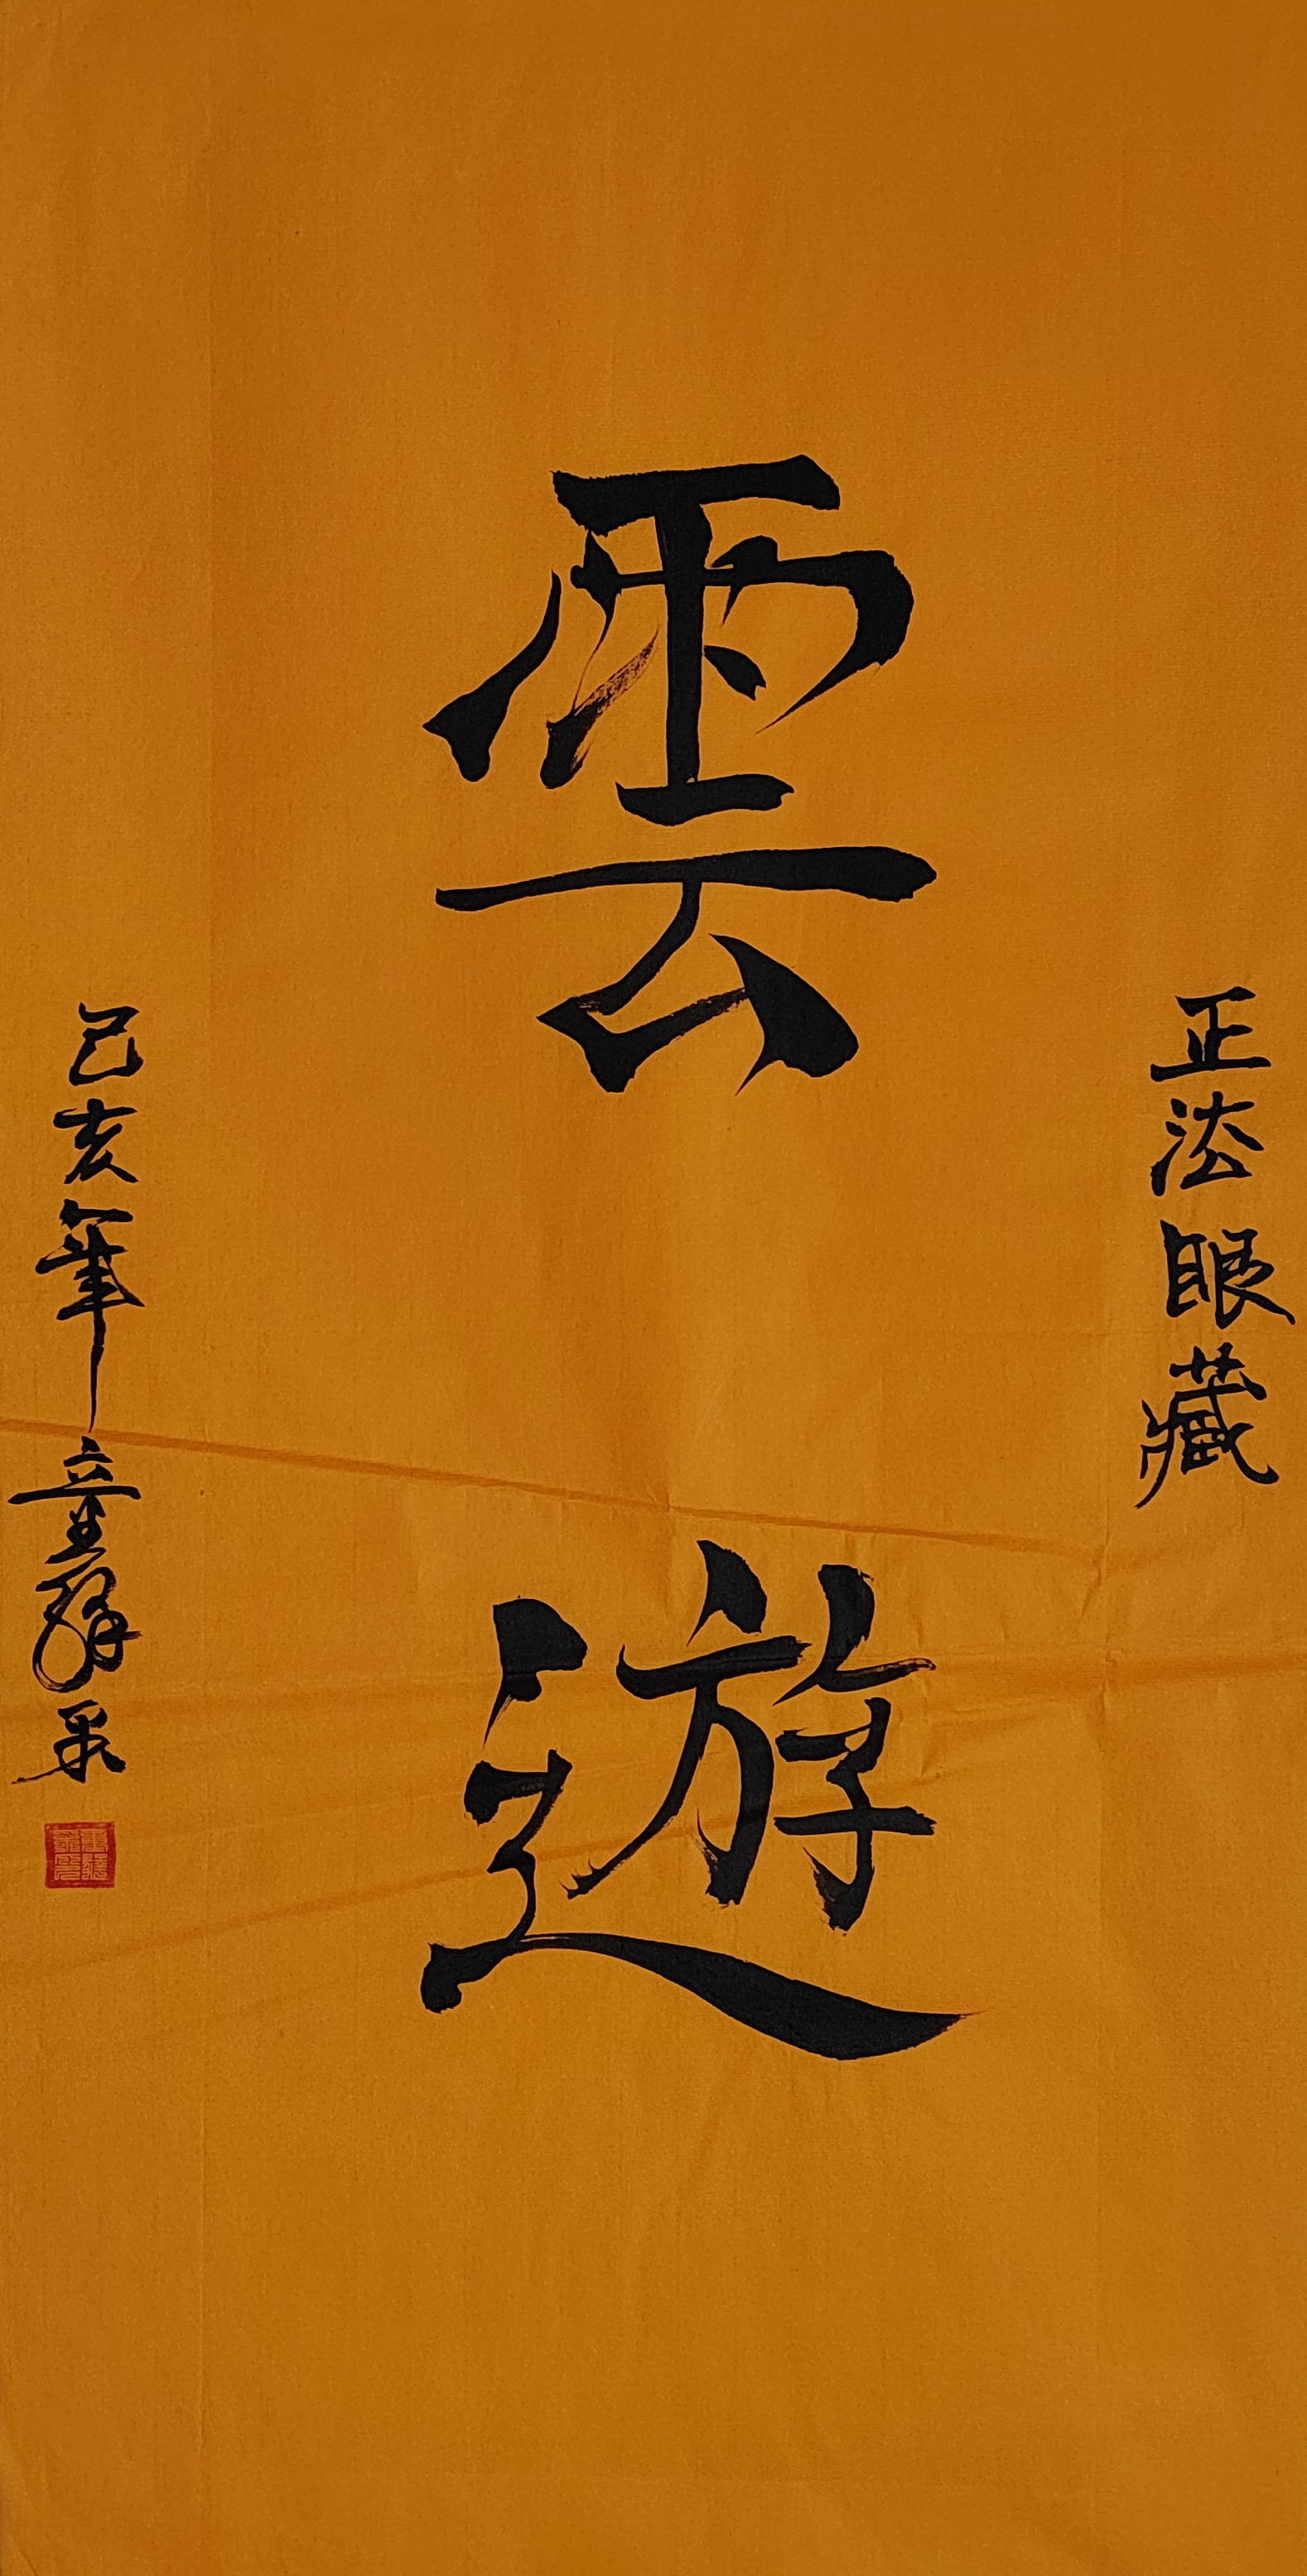 正法眼藏
雲
遊
己亥年